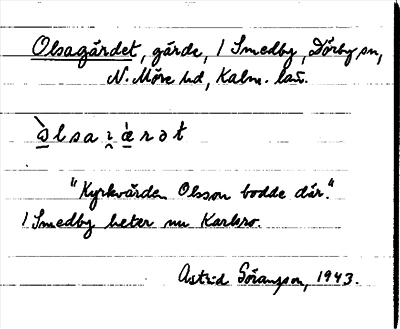 Olsagärdet, gärde, 1 Smedby, Dörby sn,
N. Möre hd, Kalm. län.
òlsaɪæ̀rət
"Kyrkvärden Olsson bodde där."
1 Smedby heter nu Karlsro.
Astrid Göransson, 1943.